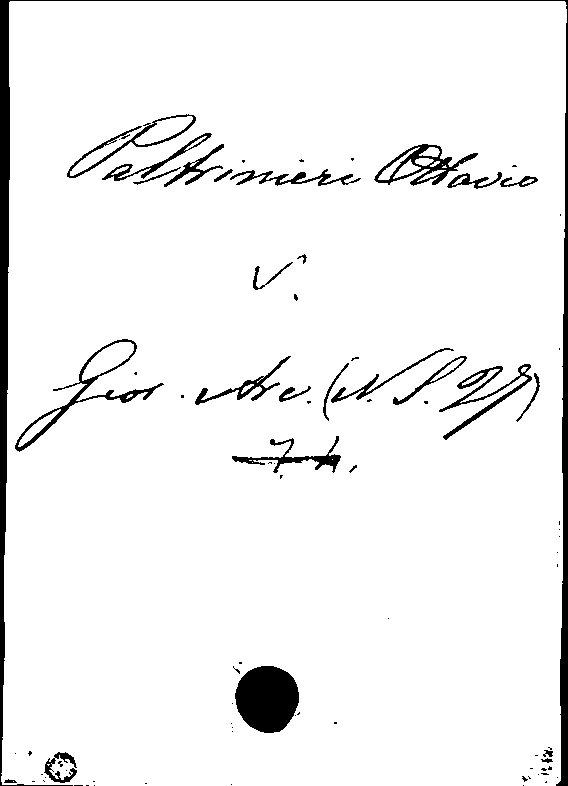 Paltrinieri Ottavio
V.
Gior. Arc. (N. S. 27)